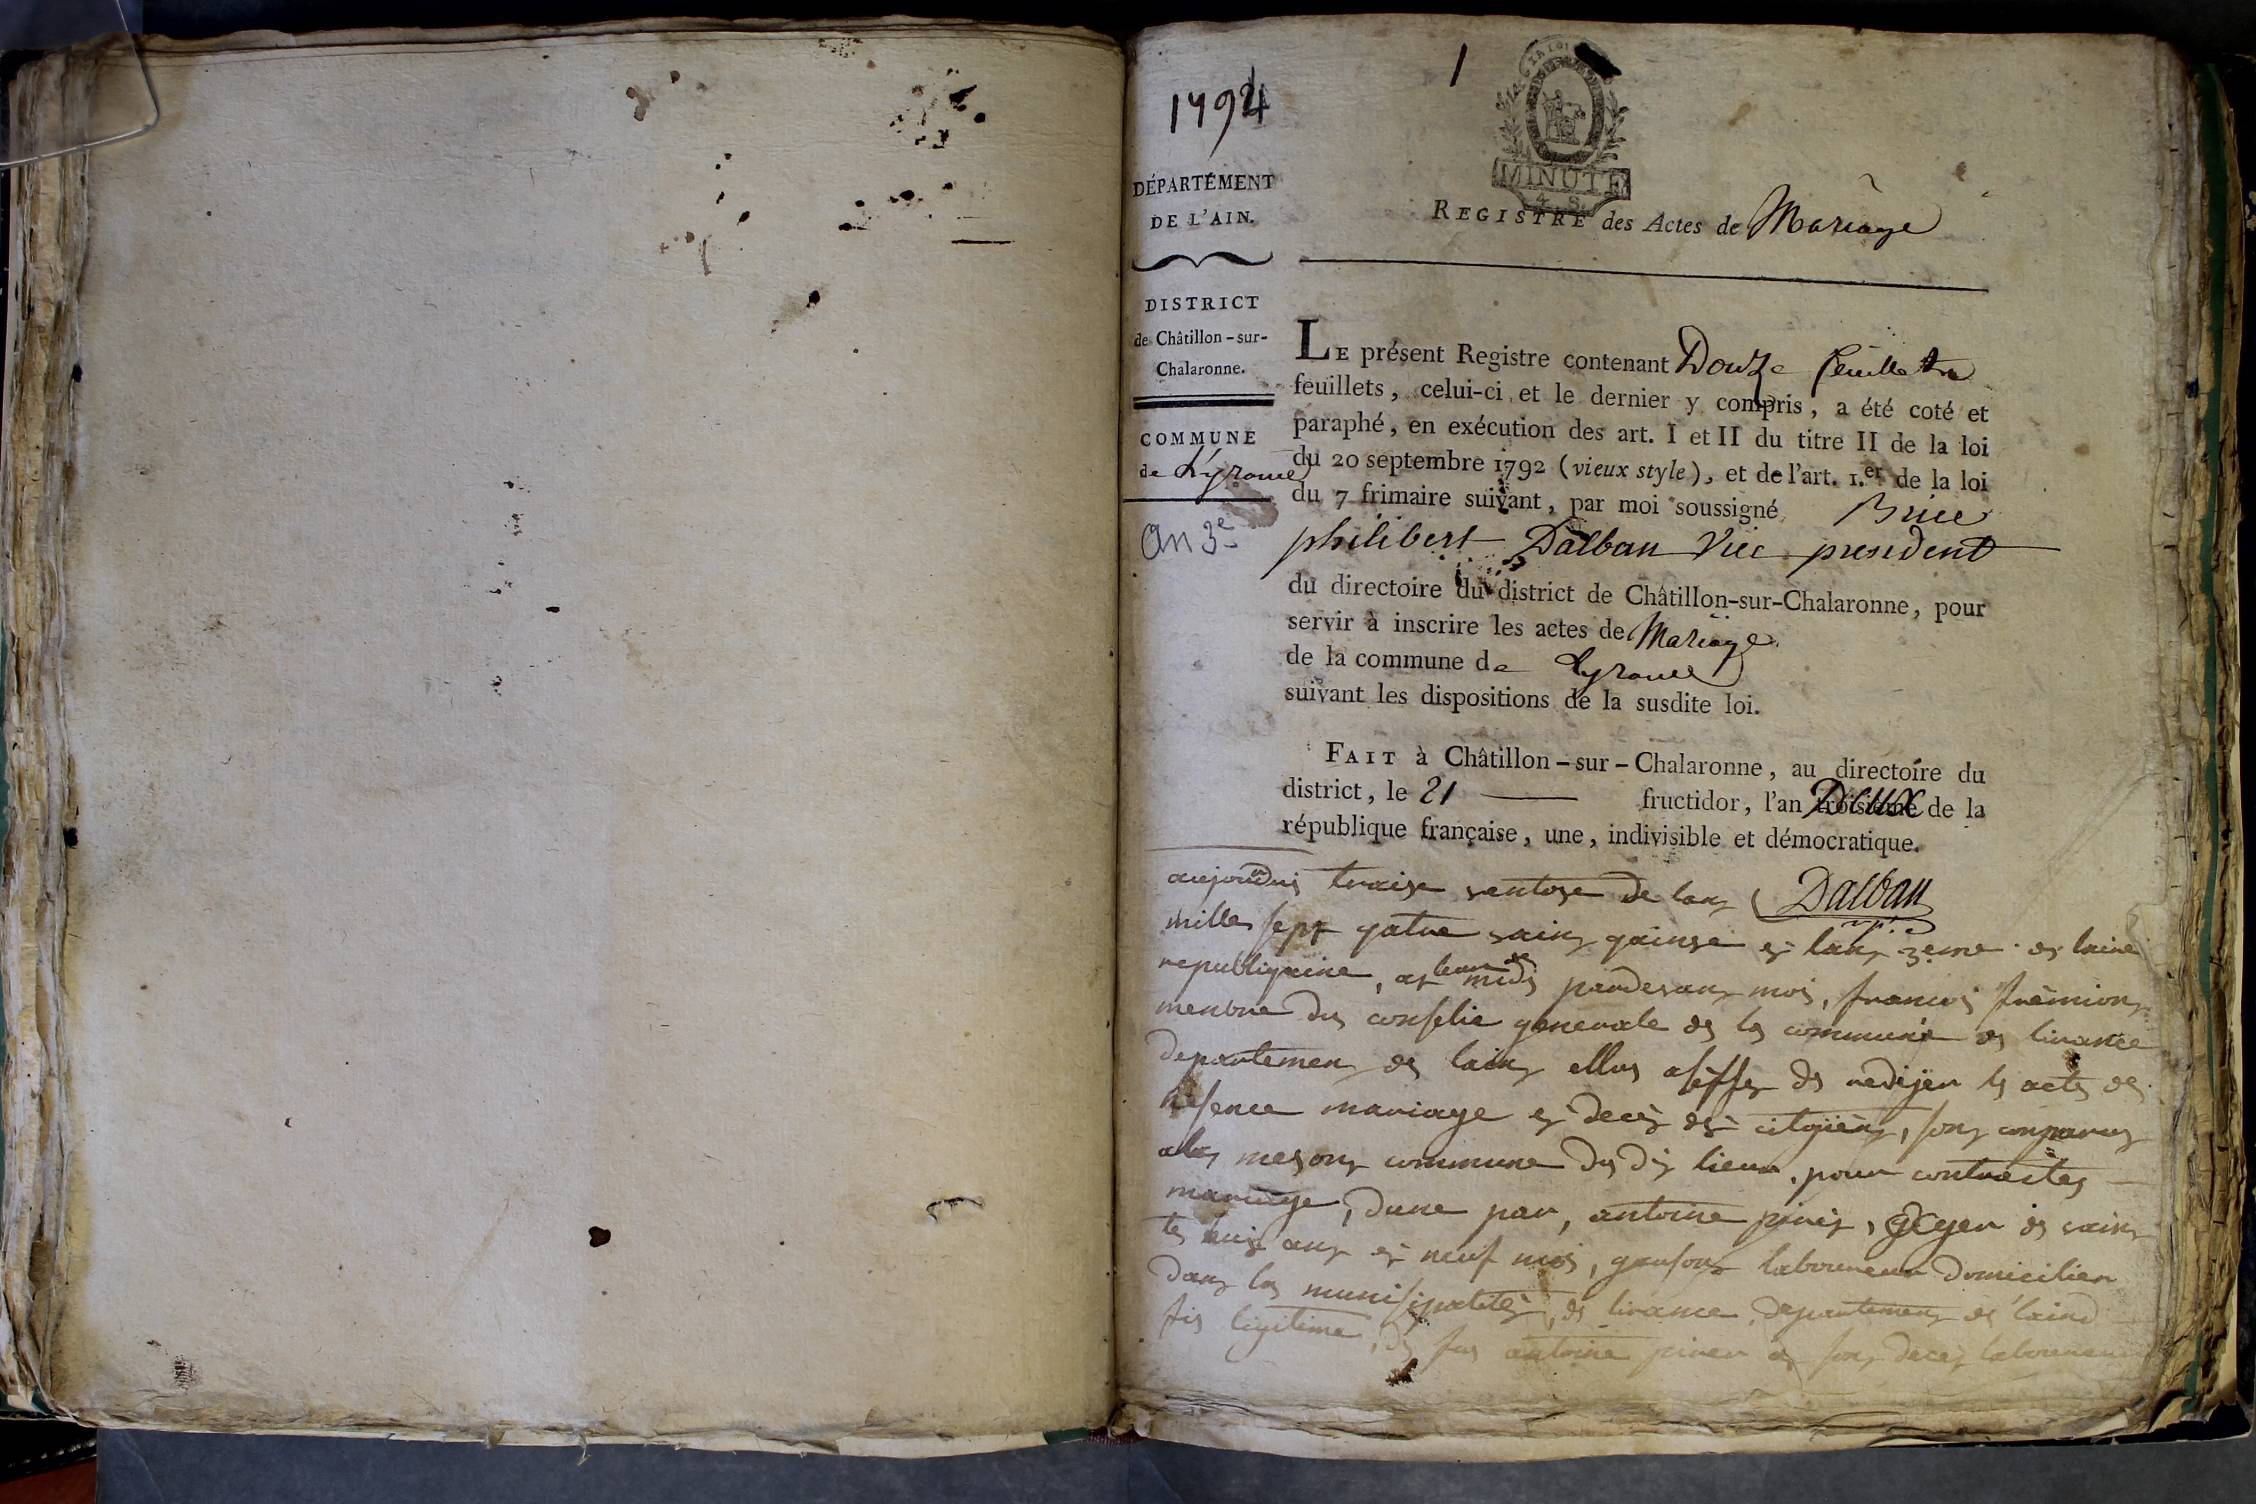 1794
1
LA LOI
MINUTE
4. S.
DÉPARTEMENT
DE L'AIN.
REGISTRE des Actes de Mariage
DISTRICT
de Châtillon-sur-
Chalaronne.
COMMUNE
de Lyrance
an 3e
LE présent Registre contenant Douze feuillets
feuillets, celui-ci et le dernier y compris, a été coté et
paraphé, en exécution des art. I et II du titre II de la loi
du 20 septembre 1792 (vieux style), et de l'art. 1.er de la loi
du 7 frimaire suivant, par moi soussigné Brice
philibert Dalban Vice president
du directoire du district de Châtillon-sur-Chalaronne, pour
servir à inscrire les actes de Mariage
de la commune de Lyrance
suivant les dispositions de la susdite loi.
FAIT à Châtillon-sur-Chalaronne, au directoire du
district, le 21 fructidor, l'an Deux de la
république française, une, indivisible et démocratique.
Dalban
aujourdui traise ventose de lant
mille sept qatre vaint qainse et lant 3eme de laire
republiquaine, midi pardevant moi, francois frémiont
menbre du conselie generale de la commune de lirance
departement de laint ellus de redijer les acte de
nesence mariage et decès des citojient, sont conparut
a la mesont commune du dit lieux, pour contractes
mariage, dune par, antoine pivet, de vaint
te huit ant et neuf mois, garsont laboureur domicilier
dant la munisipalité de lirance departement de laint
fis ligitime, de fut antoine piver a sont deces laboureur